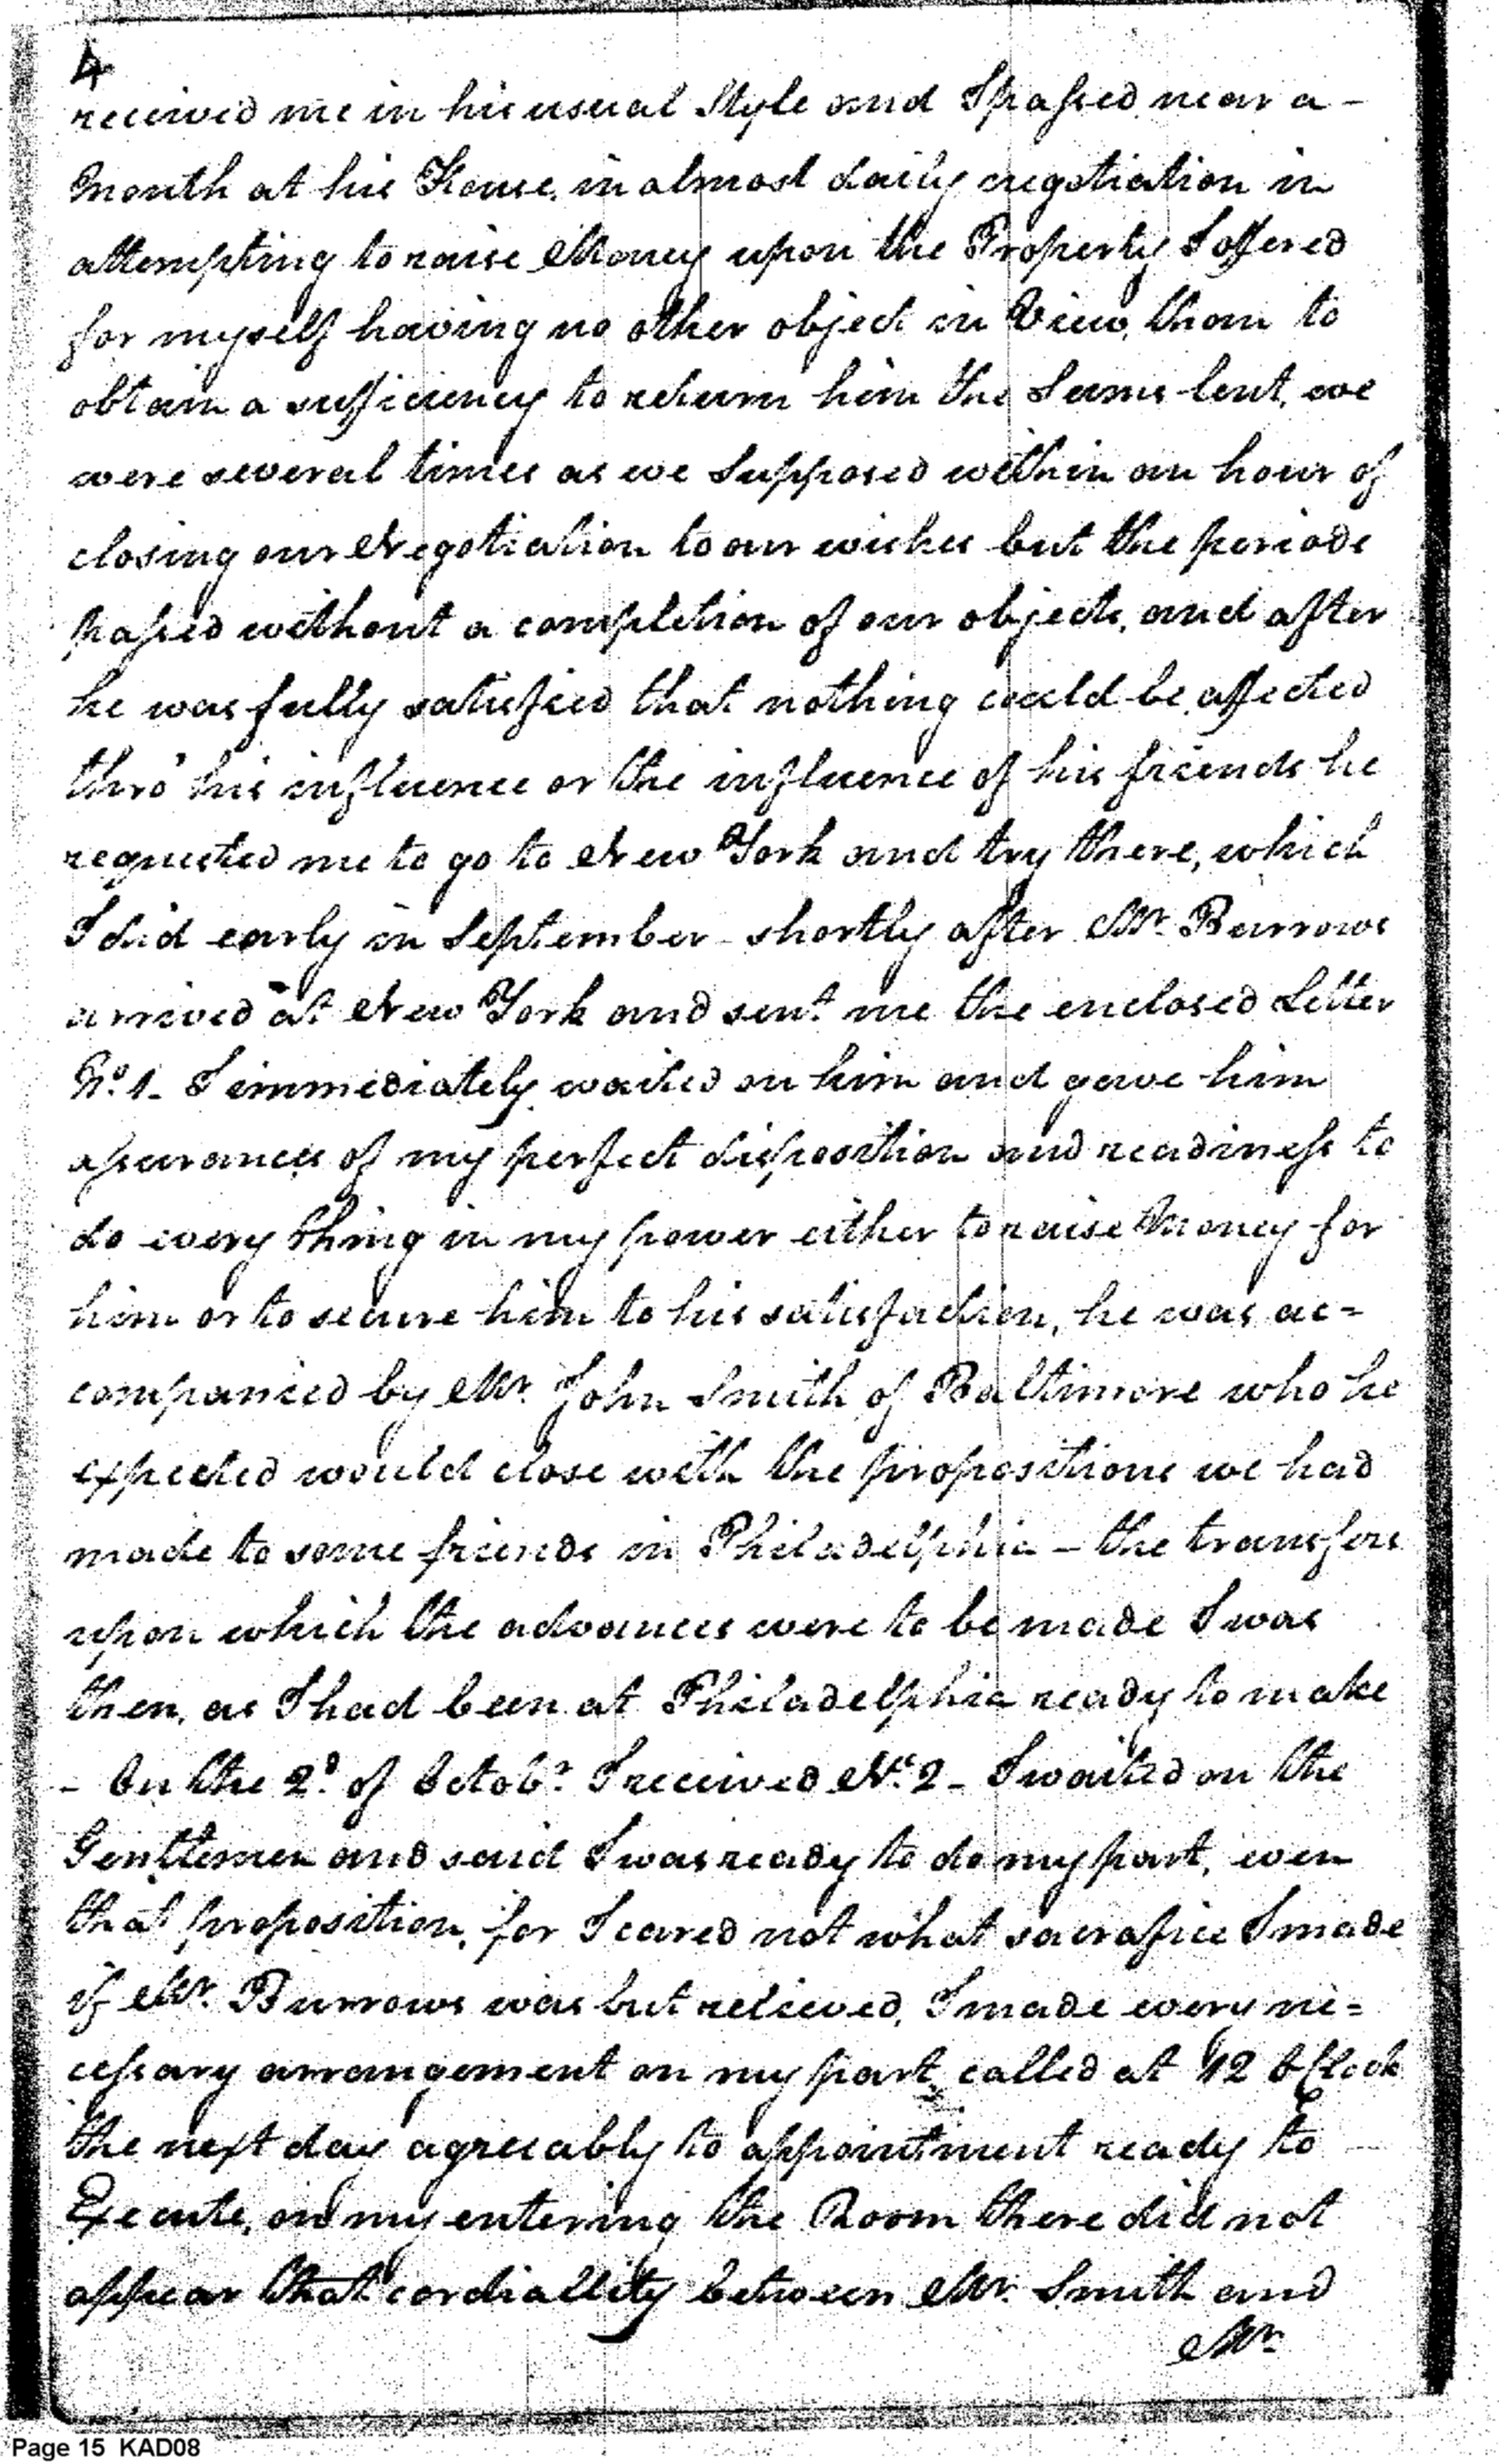 4
received me in his usual Style and I passed near a -
Month at his House, in almost daily negotiation in
attempting to raise Money upon the Property I offered
for myself having no other object in View, than to
obtain a sufficiency to return him the Sums lent, we
were several times as we Supposed within an hour of
closing our Negotiation to our wishes but the periods
passed without a completion of our objects, and after
he was fully satisfied that nothing could be affected
thro' his influence or the influence of his friends he
requested me to go to New York and try there, which
I did early in September - shortly after Mr. Burrows
arrived at New York and sent me the enclosed Letter
No. 1 - I immediately waited on him and gave him
assurances of my perfect disposition and readiness to
do every thing in my power either to raise Money for
him or to secure him to his satisfaction, he was ac=
companied by Mr. John Smith of Baltimore who he
expected would close with the propositions we had
made to some friends in Philadelphia - the transfers
upon which the advances were to be made I was
then, as I had been at Philadelphia ready to make
- On the 2d. of Octobr. I received No. 2 - I waited on the
Gentlemen and said I was ready to do my part, even
that proposition, for I cared not what sacrafice I made
if Mr. Burrows was but relieved, I made every ne=
cessary arrangement on my part called at 12 OClock
the next day agreeably to appointment ready to
Execute, on my entering the Room there did not
appear that cordiallity between Mr. Smith and
Mr.
Page 15 KAD08